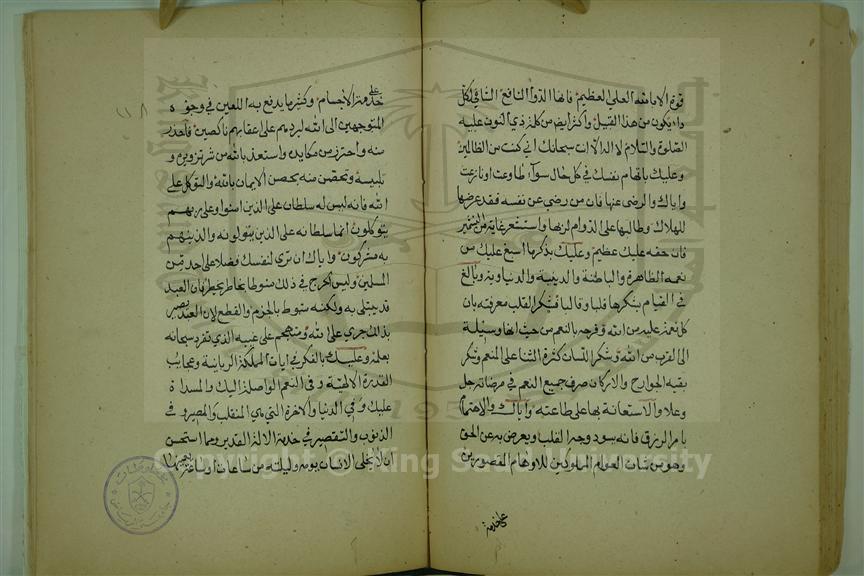 قوة الا بالله العلي العظيم فانها الدوآ النافع الشافي لكل
دآء يكون من هذا القبيل وأكثر ايضا من كلمة ذي النون عليه
الصلوة والسلام لا اله الا انت سبحانك اني كنت من الظالمين
وعليك باتهام نفسك في كل حال سوآء طاوعت او نازعت
واياك والرضى عنها فان من رضي عن نفسه فقد عرضها
للهلاك وطالبها على الدوام لربها واستشعر غاية من التقصير
فان حقه عليك عظيم وعليك بذكر ما اسبغ عليك من
نعمه الظاهرة والباطنة والدينية والدنياوية وبالغ
في القيام بشكرها قلبا وقالبا فشكر القلب معرفته بان
كل نعمة عليه من الله وفرحه بالنعم من حيث انها وسيلة
الى القرب من الله وشكر اللسان كثرة الثنا على المنعم وشكر
بقية الجوارح والاركان صرف جميع النعم في مرضاته جل
وعلا والاستعانة بها على طاعته واياك والاهتمام
بامر الرزق فانه يسود وجه القلب ويعرض به عن الحق
وهو من شان العوام المملوكين للاوهام المقصورين
على خدمة
على
خدمة الاجسام وكثيرا ما يدفع به اللعين في وجوه
المتوجهين الى الله ليردهم على اعقابهم ناكصين فاحذر
منه واحترز من مكايده واستعذ بالله من شر تزويره و
تلبيسه وتحصن منه بحصن الايمان بالله والتوكل على
الله فانه ليس له سلطان على الذين امنوا وعلى ربهم
يتوكلون انما سلطانه على الذين يتولونه والذين هم
به مشركون واياك ان ترى لنفسك فضلا على احد من
المسلمين وليس الحرج في ذلك منوطا بخاطر يخطر فان العبد
قد يبتلى به ولكنه منوط بالجزم والقطع لان العبد يصير
بذلك جري على الله ومتهجم على غيبه الذي تفرد سبحانه
بعلمه وعليك بالفكر في ايات المملكة الربانية وعجايب
القدرة الالهية وفي النعم الواصلة اليك والمسداة
عليك وفي الدنيا والاخرة التي هي المنقلب والمصير وفي
الذنوب والتقصير في خدمة الاله القدير ومما استحسن
ان لا يخلى الانسان يومه وليلته من ساعات او ساعة
Copyright © King Saud University
1957